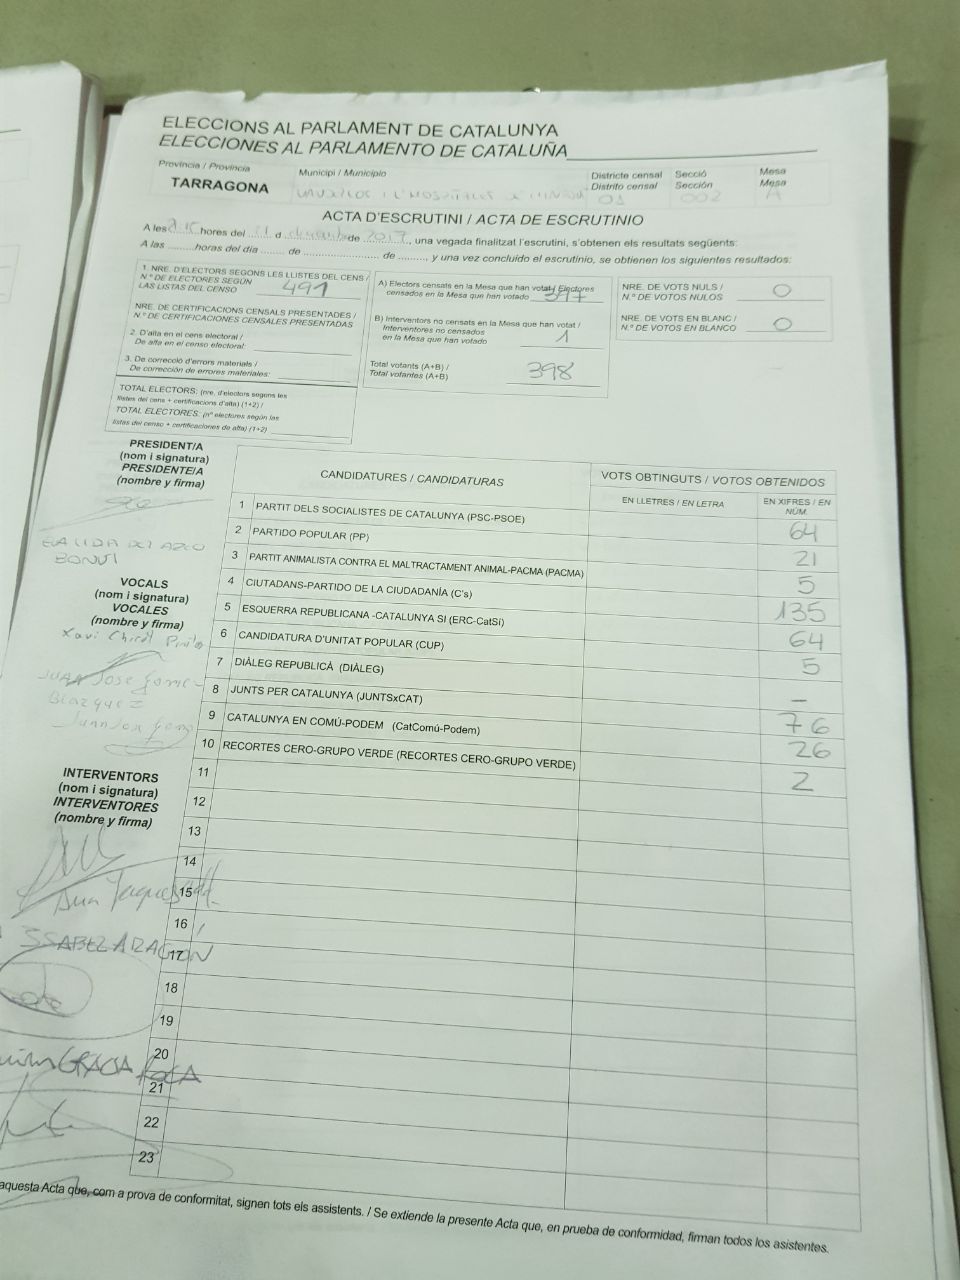 ELECCIONS AL PARLAMENT DE CATALUNYA
ELECCIONES AL PARLAMENTO DE CATALUÑA
Província / Provincia
TARRAGONA
Municipi / Municipio
Districte censal
Distrito censal
01
Secció
Sección
002
Mesa
Mesa
A
ACTA D'ESCRUTINI / ACTA DE ESCRUTINIO
A les hores del 21 d desembre de 2017, una vegada finalitzat l'escrutini, s'obtenen els resultats següents:
A las ......... horas del día ....... de ...................... de ........., y una vez concluido el escrutinio, se obtienen los siguientes resultados:
1. NRE. D'ELECTORS SEGONS LES LLISTES DEL CENS /
N.º DE ELECTORES SEGÚN
LAS LISTAS DEL CENSO 491
NRE. DE CERTIFICACIONS CENSALS PRESENTADES /
N.º DE CERTIFICACIONES CENSALES PRESENTADAS
2. D'alta en el cens electoral /
De alta en el censo electoral:
3. De correcció d'errors materials /
De corrección de errores materiales:
TOTAL ELECTORS: (nre. d'electors segons les
llistes del cens + certificacions d'alta) (1+2) /
TOTAL ELECTORES: (nº electores según las
listas del censo + certificaciones de alta) (1+2)
A) Electors censats en la Mesa que han votat / Electores
censados en la Mesa que han votado 397
B) Interventors no censats en la Mesa que han votat /
Interventores no censados
en la Mesa que han votado 1
Total votants (A+B) /
Total votantes (A+B) 398
NRE. DE VOTS NULS /
N.º DE VOTOS NULOS 0
NRE. DE VOTS EN BLANC /
N.º DE VOTOS EN BLANCO 0
PRESIDENT/A
(nom i signatura)
PRESIDENTE/A
(nombre y firma)
VOCALS
(nom i signatura)
VOCALES
(nombre y firma)
Xavi
JUAN Jose Gomez
Blazquez
INTERVENTORS
(nom i signatura)
INTERVENTORES
(nombre y firma)
ISABEL ARAGON
GRACIA ROCA
CANDIDATURES / CANDIDATURAS
VOTS OBTINGUTS / VOTOS OBTENIDOS
EN LLETRES / EN LETRA
EN XIFRES / EN
NÚM.
1 PARTIT DELS SOCIALISTES DE CATALUNYA (PSC-PSOE) 64
2 PARTIDO POPULAR (PP) 21
3 PARTIT ANIMALISTA CONTRA EL MALTRACTAMENT ANIMAL-PACMA (PACMA) 5
4 CIUTADANS-PARTIDO DE LA CIUDADANÍA (C's) 135
5 ESQUERRA REPUBLICANA -CATALUNYA SI (ERC-CatSí) 64
6 CANDIDATURA D'UNITAT POPULAR (CUP) 5
7 DIÀLEG REPUBLICÀ (DIÀLEG) –
8 JUNTS PER CATALUNYA (JUNTSxCAT) 76
9 CATALUNYA EN COMÚ-PODEM (CatComú-Podem) 26
10 RECORTES CERO-GRUPO VERDE (RECORTES CERO-GRUPO VERDE) 2
11
12
13
14
15
16
17
18
19
20
21
22
23
aquesta Acta que, com a prova de conformitat, signen tots els assistents. / Se extiende la presente Acta que, en prueba de conformidad, firman todos los asistentes.